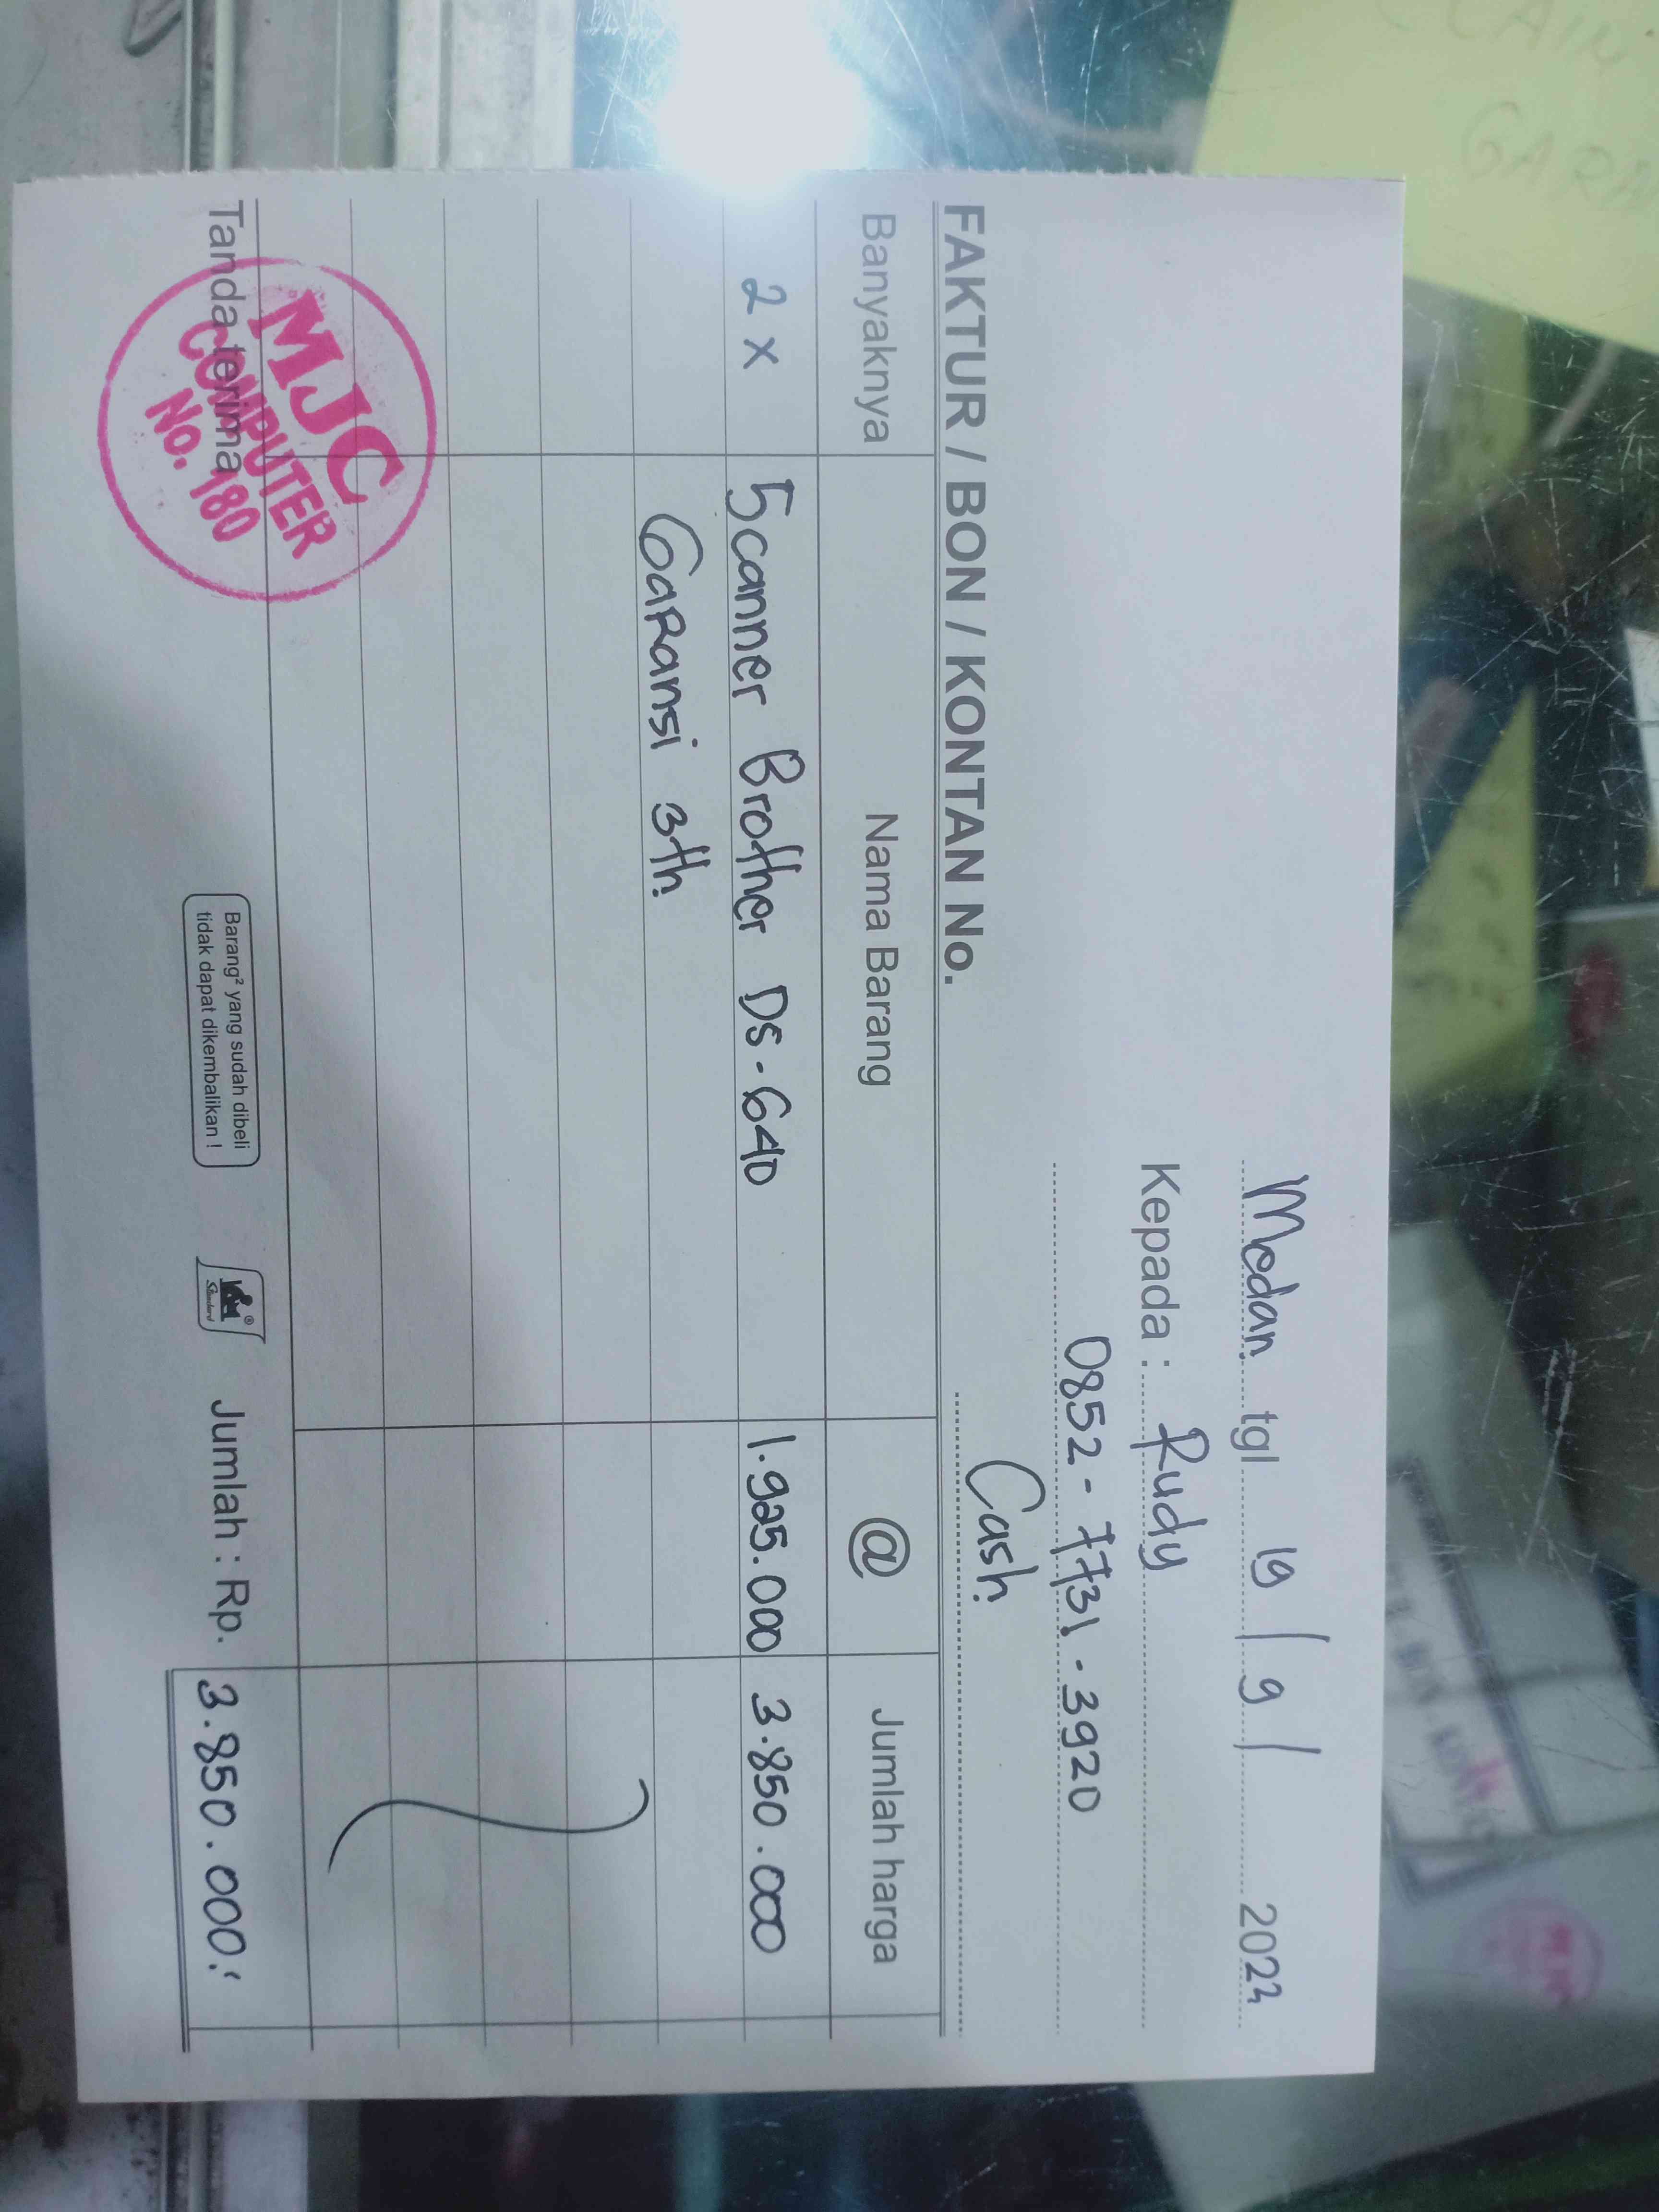 Medan tgl 19 / 9 / 2022
Kepada : Rudy
0852-7731-3920
Cash
FAKTUR / BON / KONTAN No.
Banyaknya Nama Barang @ Jumlah harga
2 x Scanner Brother DS-640 1.925.000 3.850.000
Garansi 3th
Tanda terima
MJC
COMPUTER
No. 180
Barang² yang sudah dibeli
tidak dapat dikembalikan !
Standard
Jumlah : Rp. 3.850.000